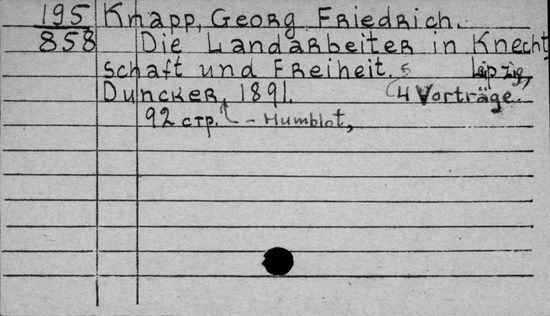 195 Knapp, Georg Friedrich.
858 Die Landarbeiter in Knecht
schaft und Freiheit. Leipzig,
Duncker, 1891. (4 Vorträge.
92 стр. - Humblot,